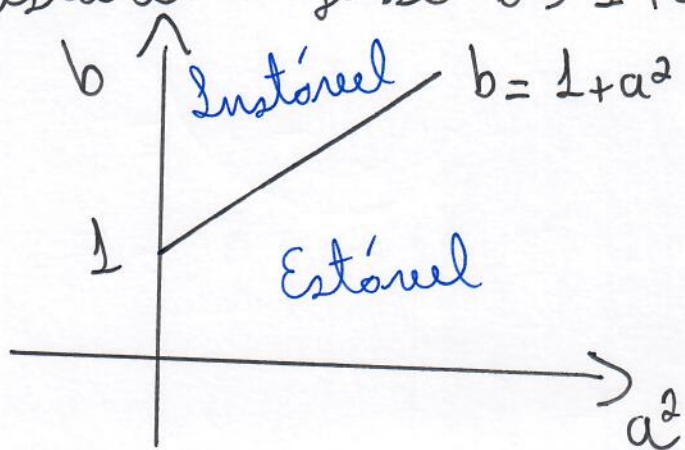 b
Instável
b = 1 + a²
1
Estável
a²